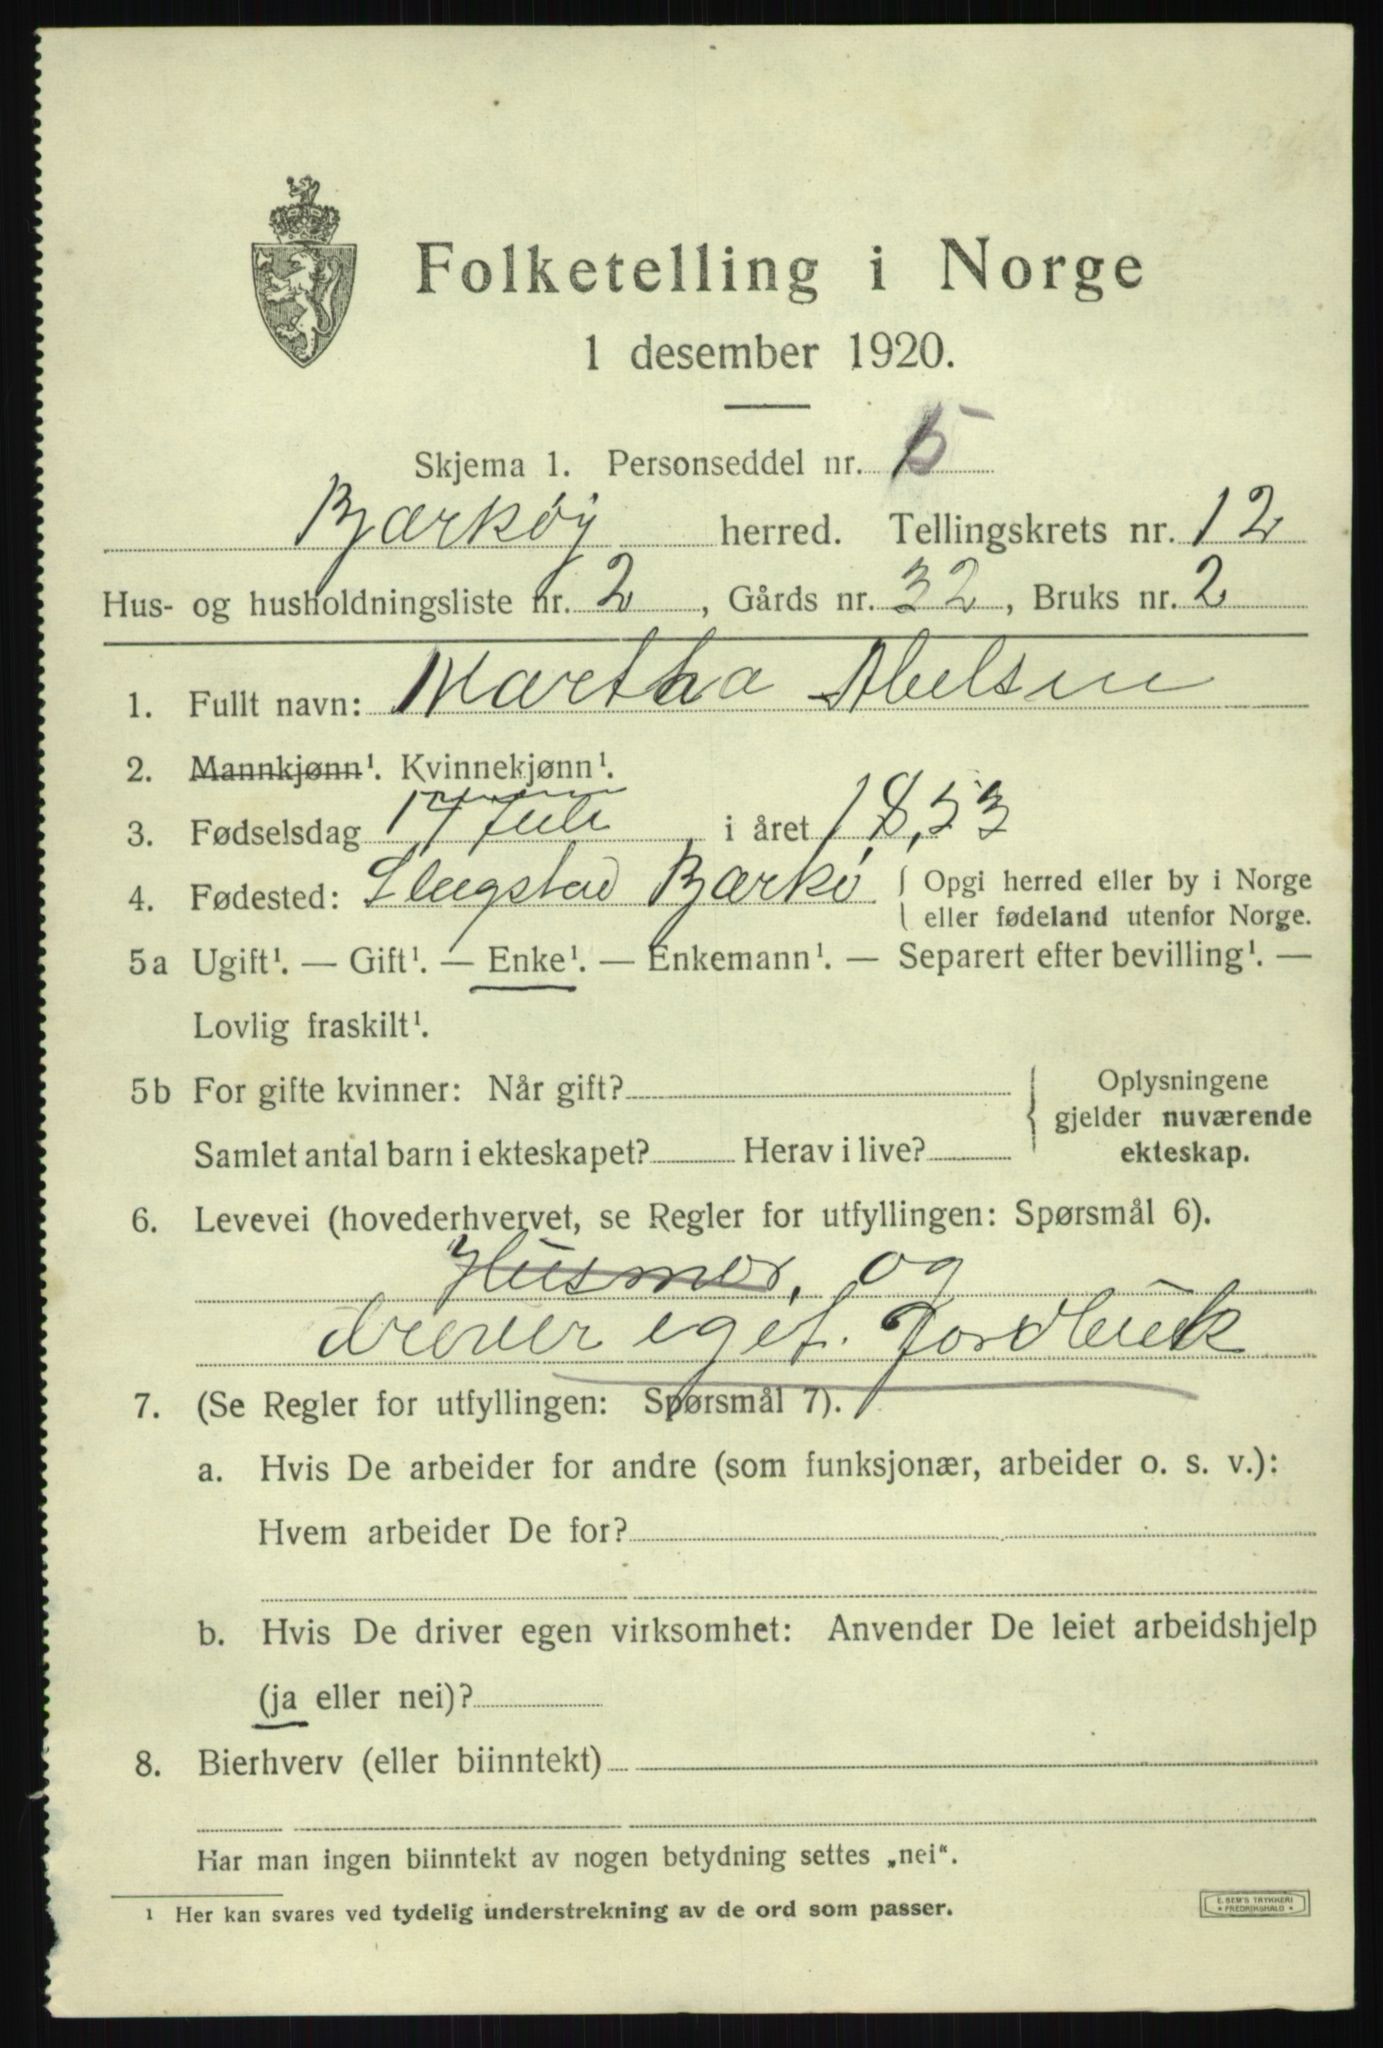 Folketelling i Norge
1 desember 1920.
Skjema 1. Personseddel nr. 5
Bjærkøy herred. Tellingskrets nr. 12
Hus- og husholdningsliste nr. 2, Gårds nr. 32, Bruks nr. 2
1. Fullt navn: Martha Abelsen
2. Mannkjønn¹. Kvinnekjønn¹.
3. Fødselsdag 17 Juli i året 1853
4. Fødested: Bjærkø { Opgi herred eller by i Norge
eller fødeland utenfor Norge.
5a Ugift¹. — Gift¹. — Enke¹. — Enkemann¹. — Separert efter bevilling¹. —
Lovlig fraskilt¹.
5b For gifte kvinner: Når gift?
Samlet antal barn i ekteskapet? Herav i live?
{ Oplysningene
gjelder nuværende
ekteskap.
6. Levevei (hovederhvervet, se Regler for utfyllingen: Spørsmål 6).
Husmor, og
drever eget. Jordbruk
7. (Se Regler for utfyllingen: Spørsmål 7).
a. Hvis De arbeider for andre (som funksjonær, arbeider o. s. v.):
Hvem arbeider De for?
b. Hvis De driver egen virksomhet: Anvender De leiet arbeidshjelp
(ja eller nei)?
8. Bierhverv (eller biinntekt)
Har man ingen biinntekt av nogen betydning settes „nei“.
¹ Her kan svares ved tydelig understrekning av de ord som passer.
E. SEM'S TRYKKERI
* FREDRIKSHALD *